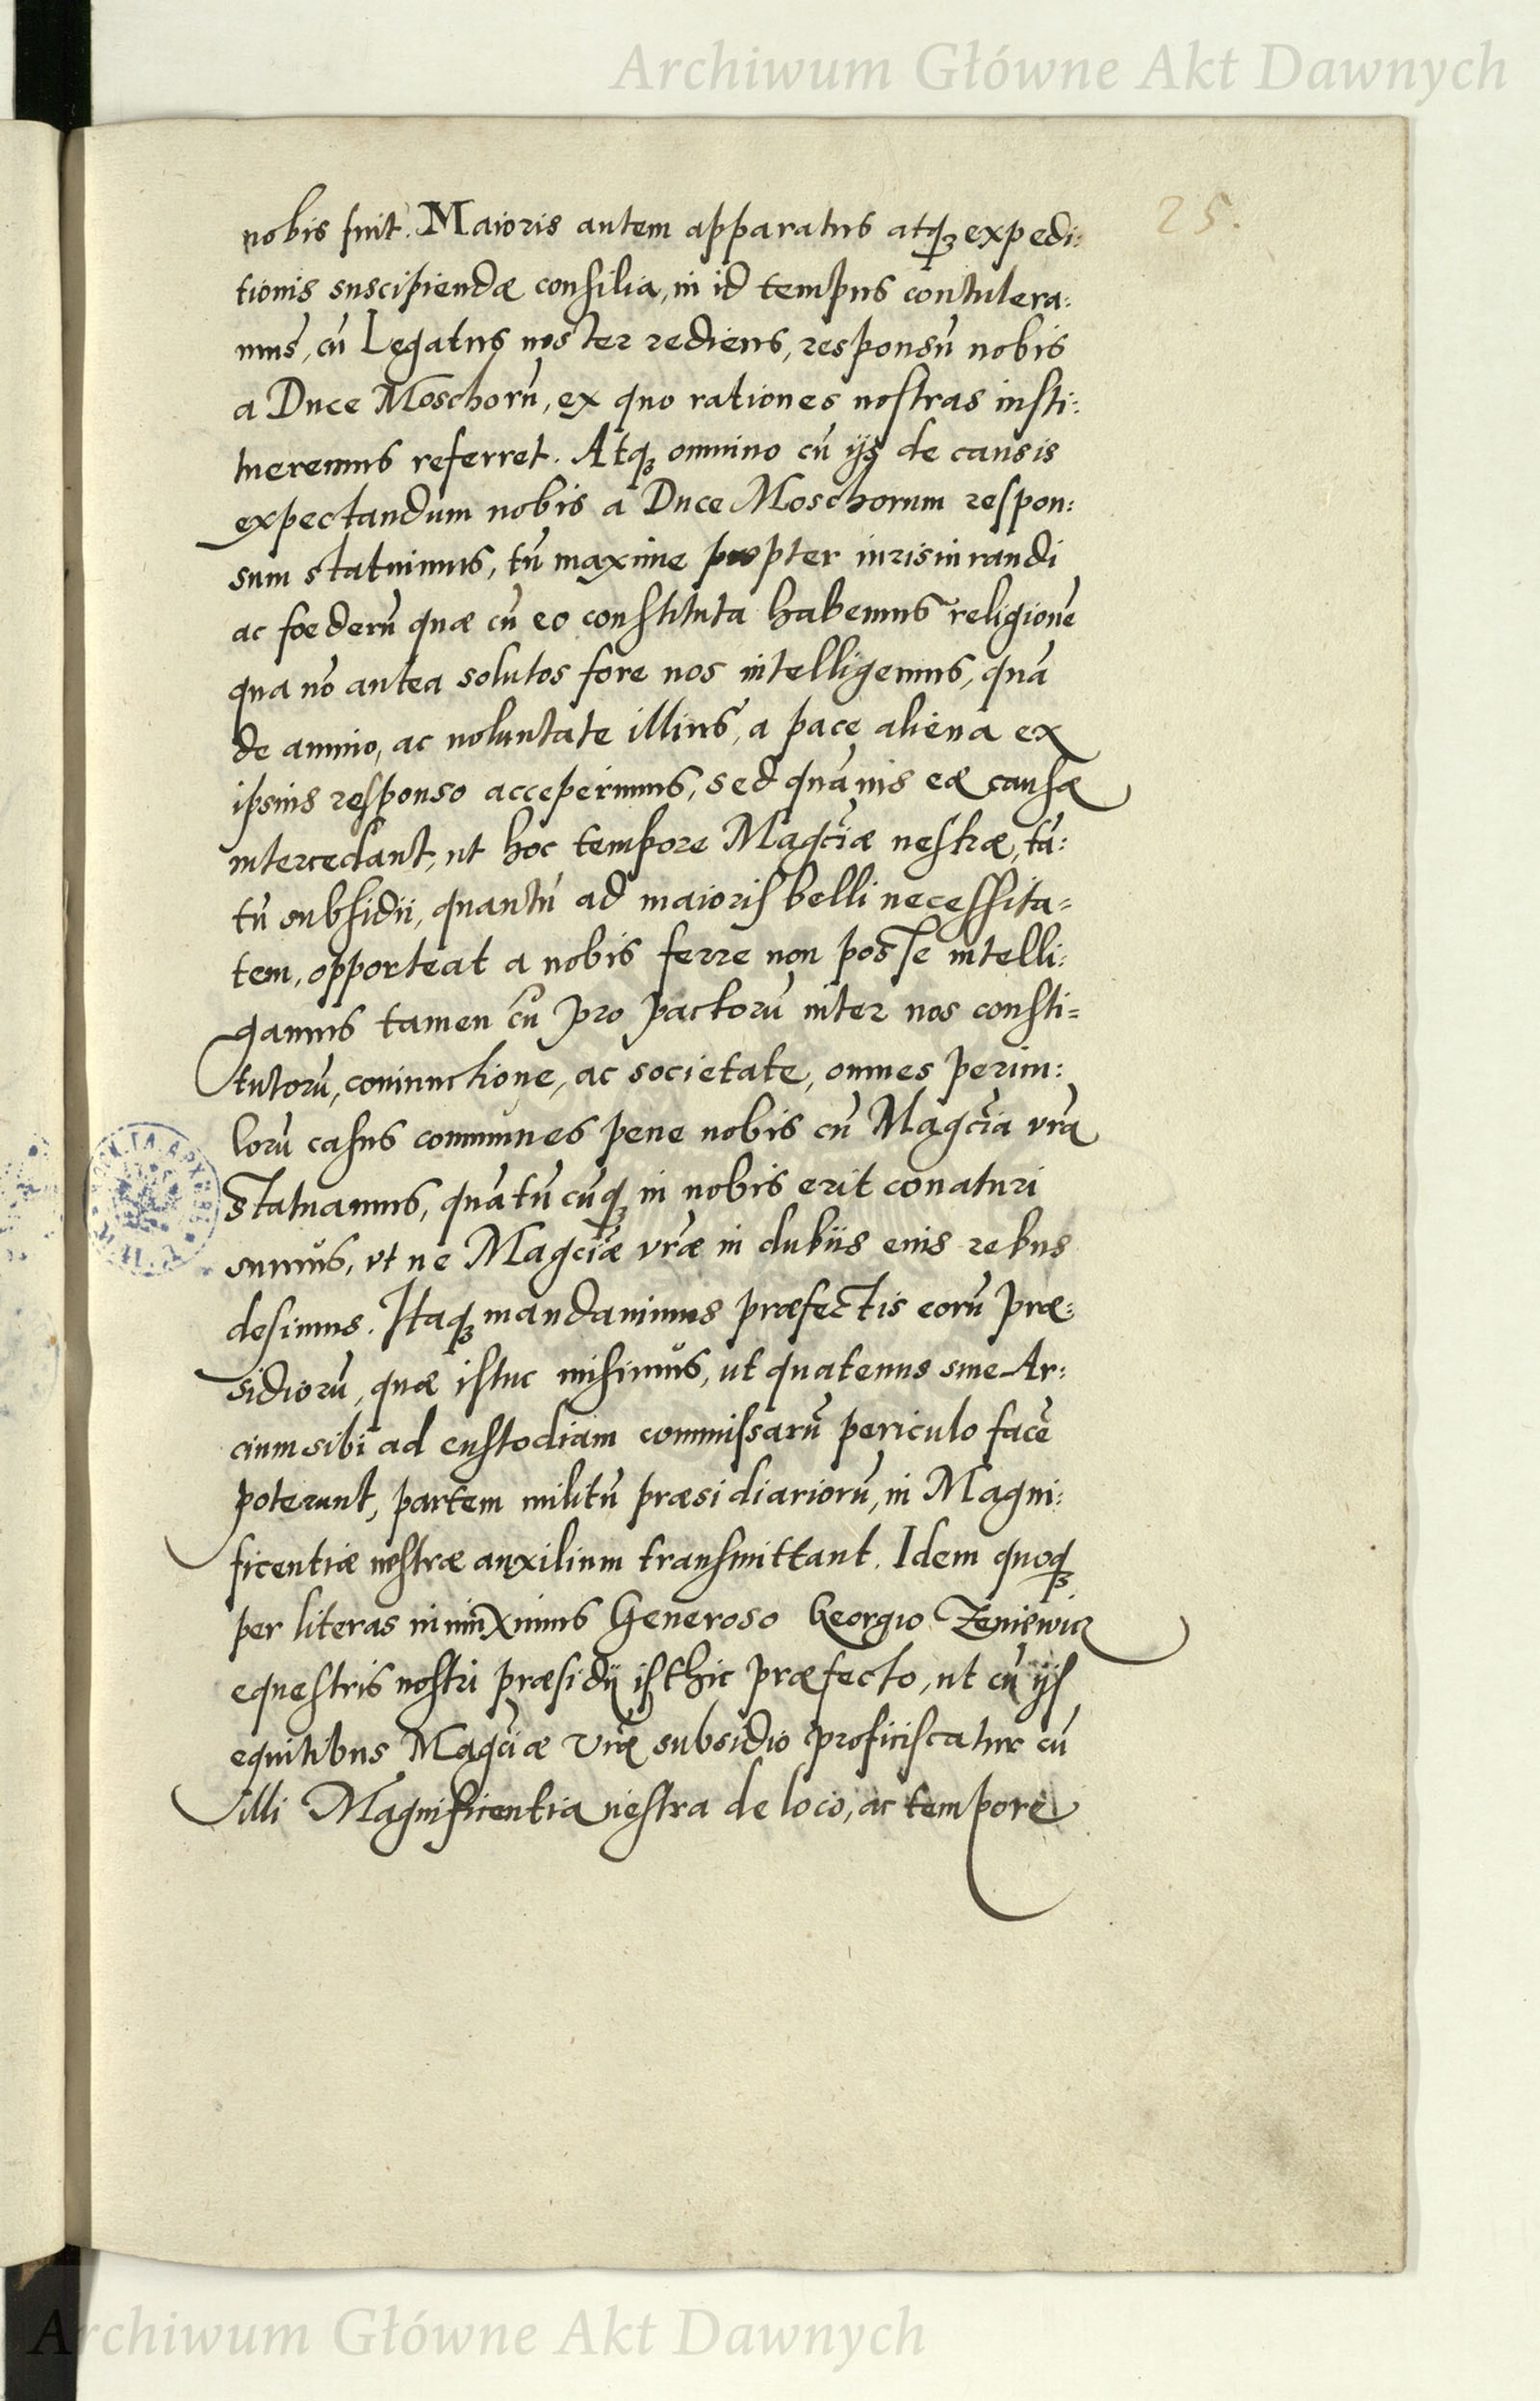 Archiwum Główne Akt Dawnych
25.
nobis fuit. Maioris autem apparatus atqꝫ expedi:
tionis suscipiendæ consilia, in id tempus contulera:
mus, cū Legatus noster rediens, responsū nobis
a Duce Moschorū, ex quo rationes nostras insti:
tueremus referret. Atqꝫ omnino cū ijs de causis
expectandum nobis a Duce Moschorum respon:
sum statuimus, tū maxime propter iurisiurandi
ac foederū quæ cū eo constituta habemus religionē
qua nō antea solutos fore nos intelligemus, quā
de animo, ac uoluntate illius, a pace aliena ex
ipsius responso acceperimus, sed quāuis eæ causæ
intercedant, ut hoc tempore Magciæ uestræ, tā:
tū subsidii, quantū ad maioris belli necessita=
tem, opporteat a nobis ferre non posse intelli:
gamus tamen cū pro pactorū inter nos consti=
tutorū, coniunctione, ac societate, omnes pericu:
lorū casus communes pene nobis cū Magcia vrā
statuamus, quātū cūqꝫ in nobis erit conaturi
sumus, vt ne Magciæ vræ in dubiis eius rebus
desimus. Itaqꝫ mandauimus præfectis eorū præ:
sidiorū, quæ istuc misimus, ut quatenus sine Ar:
cium sibi ad custodiam commissarū periculo facē
poterunt, partem militū præsidiariorū, in Magni:
ficentiæ uestræ auxilium transmittant. Idem quoqꝫ
per literas iniunximus Generoso Georgio Zeniewicz
equestris nostri præsidij isthic præfecto, ut cū ijs
equitibus Magciæ Vræ subsidio proficiscatur cū
illi Magnificentia uestra de loco, ac tempore
Archiwum Główne Akt Dawnych